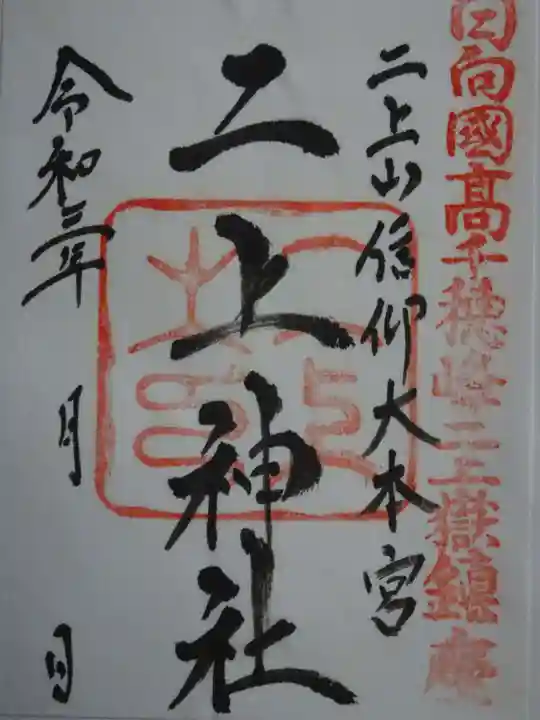 日向國高千穂峰二上嶽鎮座
二上山信仰大本宮
二上神社
令和三年 月 日